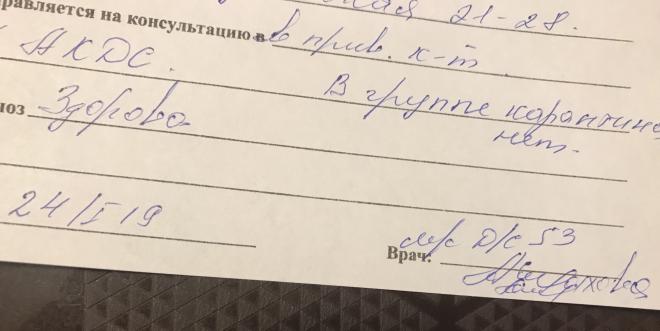 21-28.
равляется на консультацию в в прив. к-т.
АКДС.
В группе карантина
нет.
ноз Здорова
24/I 19
м/с Д/с 53
Врач: